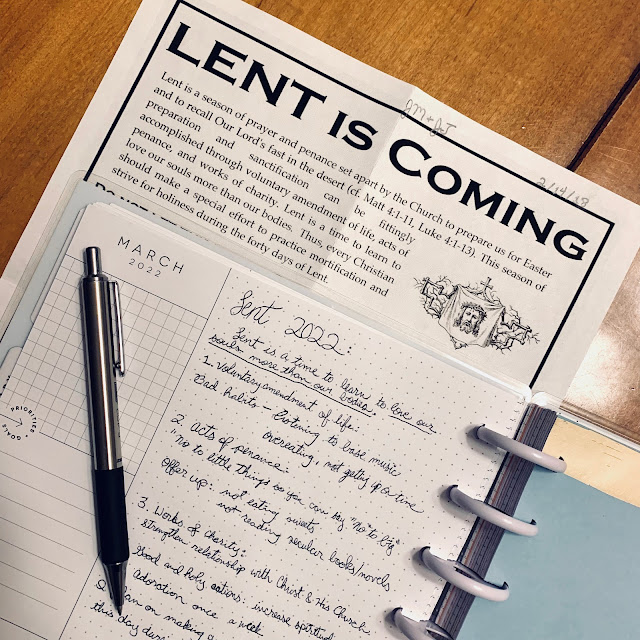 LENT IS COMING
JM + JT
2/14/18
Lent is a season of prayer and penance set apart by the Church to prepare us for Easter
and to recall Our Lord's fast in the desert (cf. Matt 4:1-11, Luke 4:1-13). This season of
preparation and sanctification can be fittingly
accomplished through voluntary amendment of life, acts of
penance, and works of charity. Lent is a time to learn to
love our souls more than our bodies. Thus, every Christian
should make a special effort to practice mortification and
strive for holiness during the forty days of Lent.
MARCH
2022
PRIORITIES
GOALS
Lent 2022:
Lent is a time to learn to love our
souls more than our bodies.
1. Voluntary amendment of life:
Bad habits - listening to base music
overeating, not getting up on time
2. Acts of penance:
No to little things so you can say "no" to big
Offer up: not eating sweets
not reading secular books/novels
3. Works of charity:
strengthen relationship with Christ & His Church.
Good and holy actions: increase spiritual
adoration once a week
plan on making a
this day during